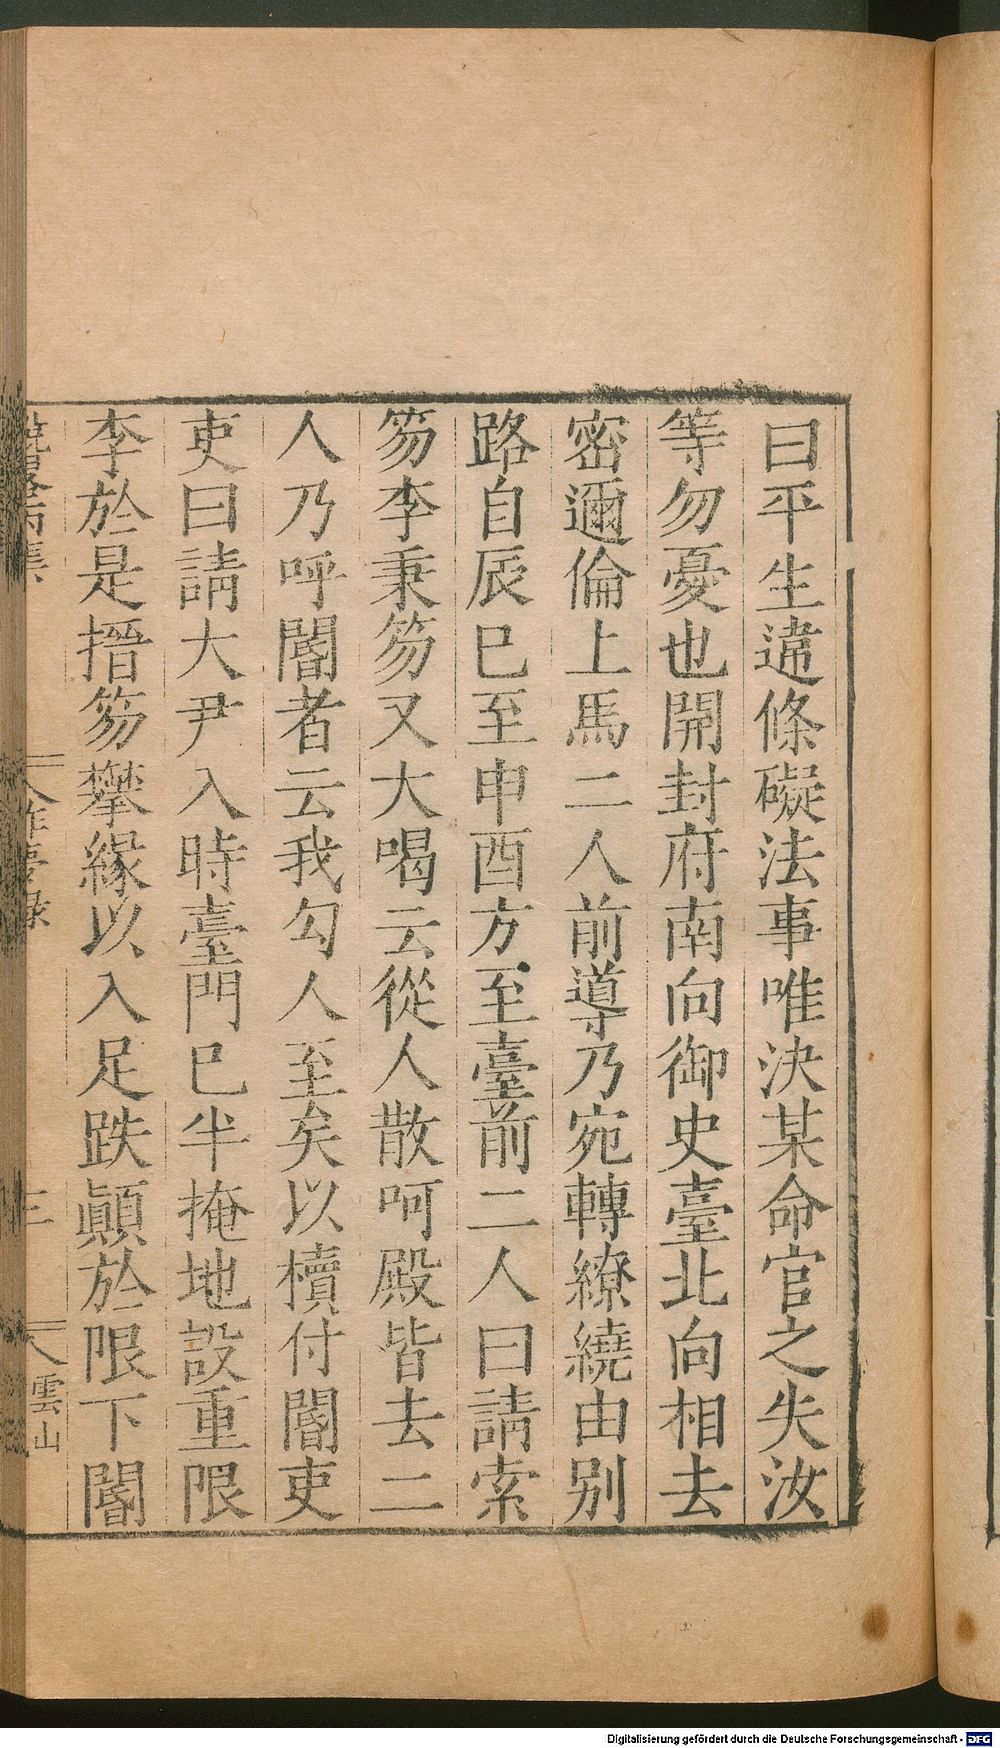 曰平生違條礙法事唯決某命官之失汝
等勿憂也開封府南向御史臺北向相去
密邇倫上馬二人前導乃宛轉繚繞由別
路自辰巳至申酉方至臺前二人曰請索
笏李秉笏又大喝云從人散呵殿皆去二
人乃呼閽者云我勾人至矣以櫝付閽吏
吏曰請大尹入時臺門已半掩地設重限
李於是搢笏攀緣以入足跌顚於限下閽
三
雲山
Digitalisierung gefördert durch die Deutsche Forschungsgemeinschaft - DFG